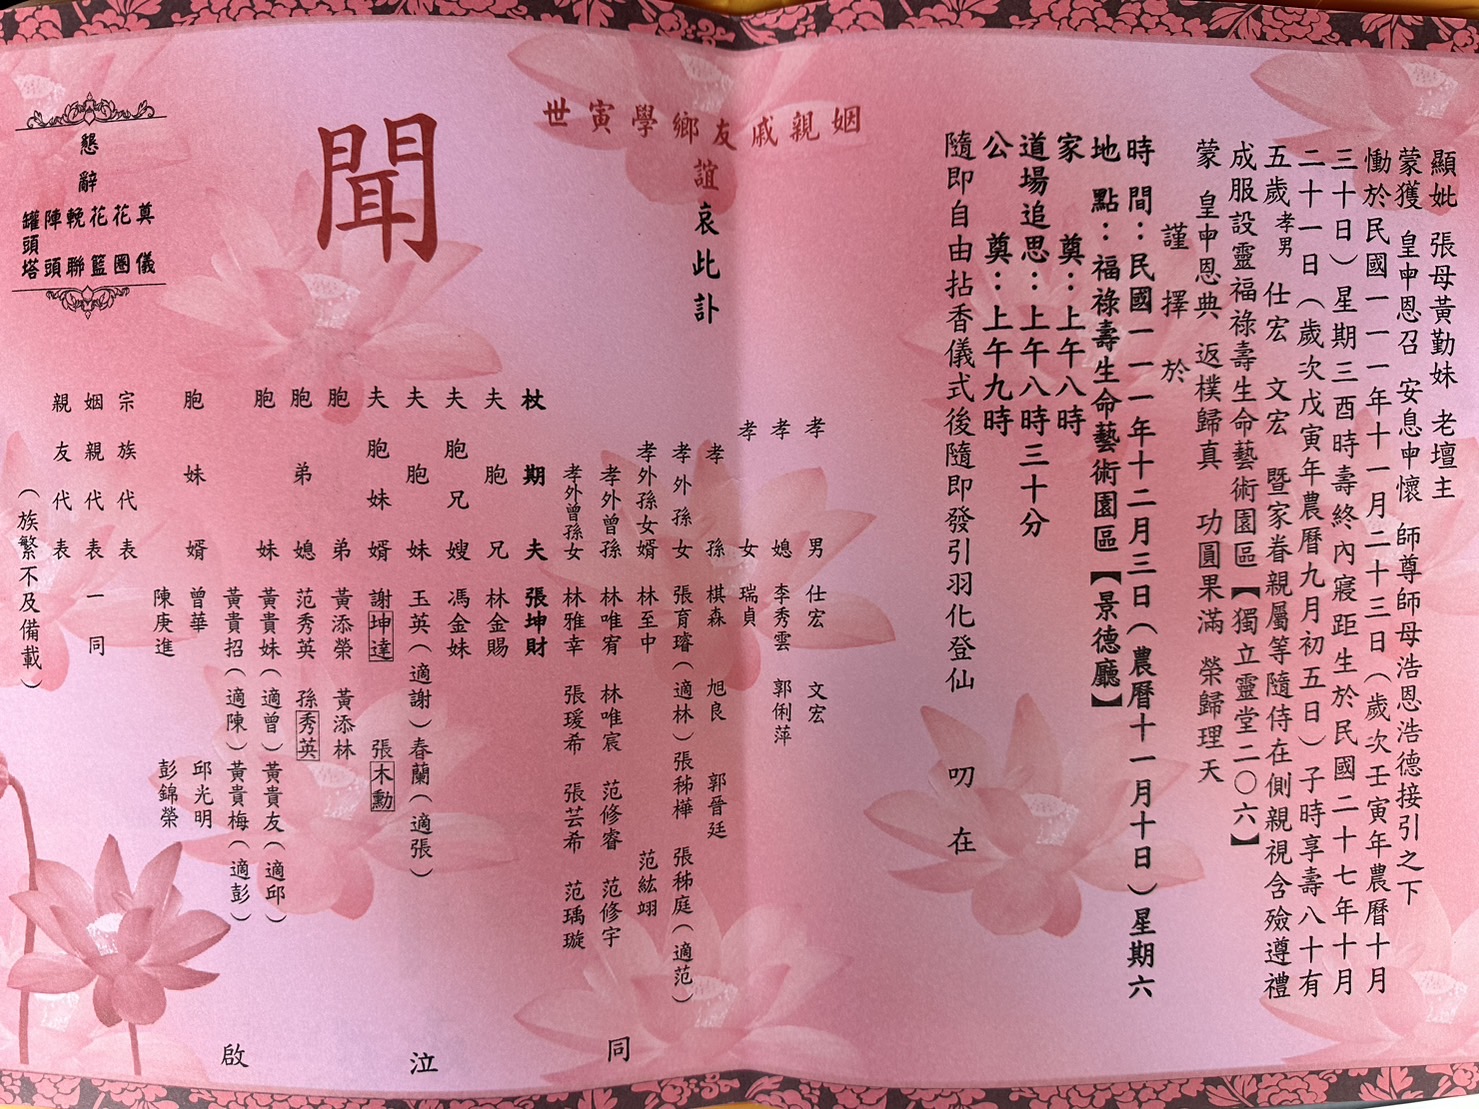 顯妣 張母黃勤妹 老壇主
蒙獲 皇申恩召 安息申懷 師尊師母浩恩浩德接引之下
慟於民國一一一年十一月二十三日（歲次壬寅年農曆十月
三十日）星期三酉時壽終內寢距生於民國二十七年十月
二十一日（歲次戊寅年農曆九月初五日）子時享壽八十有
五歲孝男 仕宏 文宏 暨家眷親屬等隨侍在側親視含殮遵禮
成服設靈福祿壽生命藝術園區【獨立靈堂二〇六】
蒙 皇申恩典 返樸歸真 功圓果滿 榮歸理天
謹擇於
時間：民國一一一年十二月三日（農曆十一月十日）星期六
地點：福祿壽生命藝術園區【景德廳】
家奠：上午八時
道場追思：上午八時三十分
公奠：上午九時
隨即自由拈香儀式後隨即發引羽化登仙 叨在
姻親戚友鄉學寅世
誼哀此訃
聞
孝男 仕宏 文宏
孝媳 李秀雲 郭俐萍
孝女 瑞貞
孝孫 棋森 旭良 郭晉廷
孝外孫女 張育瑃（適林）張秭樺 張秭庭（適范）
孝外孫女婿 林至中 范紘翊
孝外曾孫 林唯宥 林唯宸 范修睿 范修宇
孝外曾孫女 林雅幸 張瑗希 張芸希 范瑀璇
杖期夫 張坤財
夫胞兄 林金賜
夫胞兄嫂 馮金妹
夫胞妹 玉英（適謝）春蘭（適張）
夫胞妹婿 謝坤達 張木勳
胞弟 黃添榮 黃添林
胞弟媳 范秀英 孫秀英
胞妹 黃貴妹（適曾）黃貴友（適邱）
黃貴招（適陳）黃貴梅（適彭）
胞妹婿 曾華 邱光明
陳庚進 彭錦榮
宗族代表
姻親代表 一同
親友代表
（族繁不及備載）
同泣啟
懇辭
奠儀
花圈
花籃
輓聯
陣頭
罐頭塔